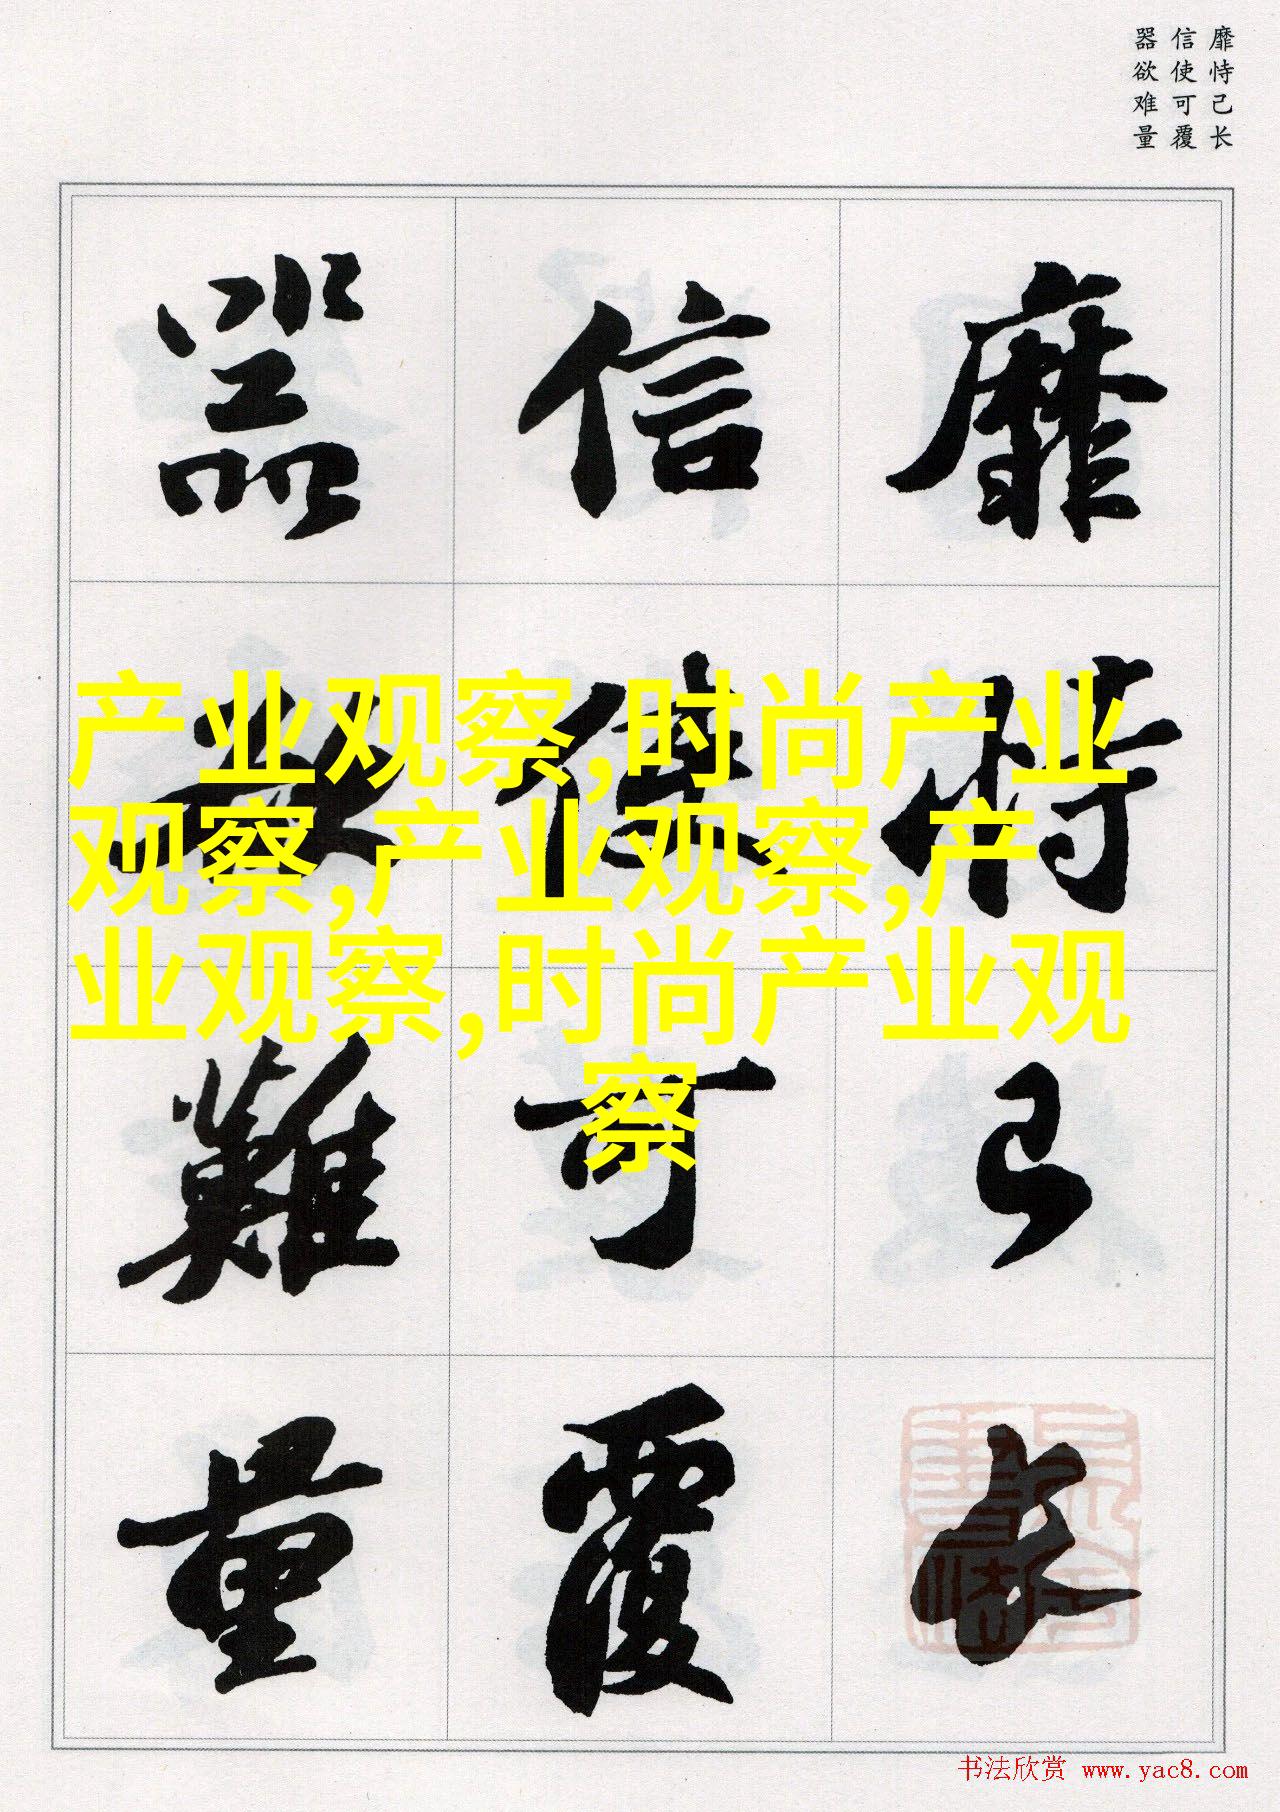 靡恃己长
信使可覆
器欲难量
靡恃己长
信使可覆
器欲難量
产业观察,时尚产业
观察,产业观察,产
业观察,时尚产业观
察
书法欣赏 www.yac8.com